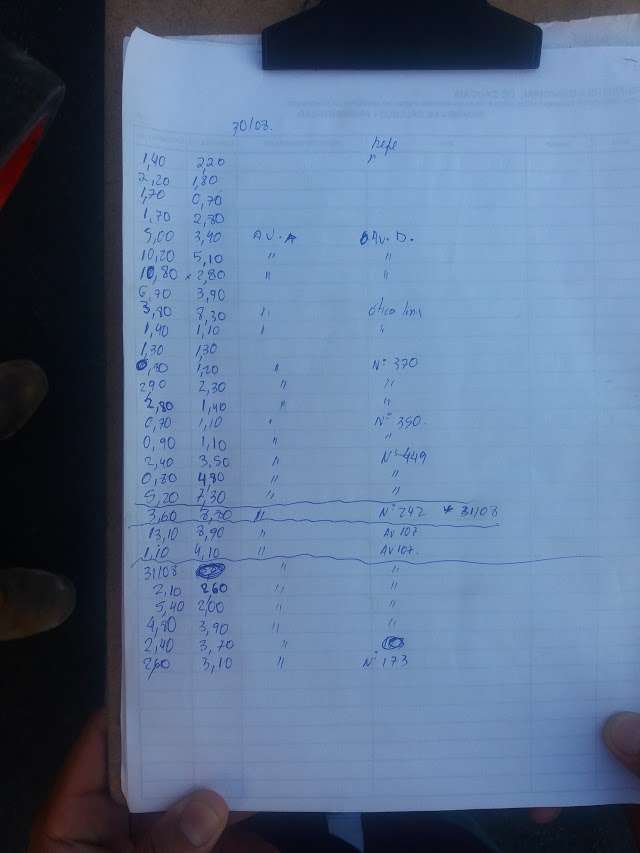 30/08.
1,40 2,20 pepe
7,20 1,80 "
1,70 0,70
1,70 2,80
5,00 3,40 AV. A AV. D.
10,20 5,10 " "
10,80 x 2,80 " "
6,70 3,90
3,80 8,30 "
1,40 1,10 " "
1,30 1,30
0,80 1,20 " Nº 370
2,90 2,30 " "
2,80 1,40 " "
0,70 1,10 " Nº 350.
0,90 1,10 " "
2,40 3,50 " Nº 449
0,80 4,80 " "
5,20 7,30 " "
3,60 8,80 " Nº 242 * 31/08
13,10 8,90 " AV 107
1,10 4,10 " AV 107.
31/08 " "
2,10 2,60 " "
5,40 2,00 " "
4,80 3,90 " "
2,40 3,70 "
2,60 3,10 " Nº 173